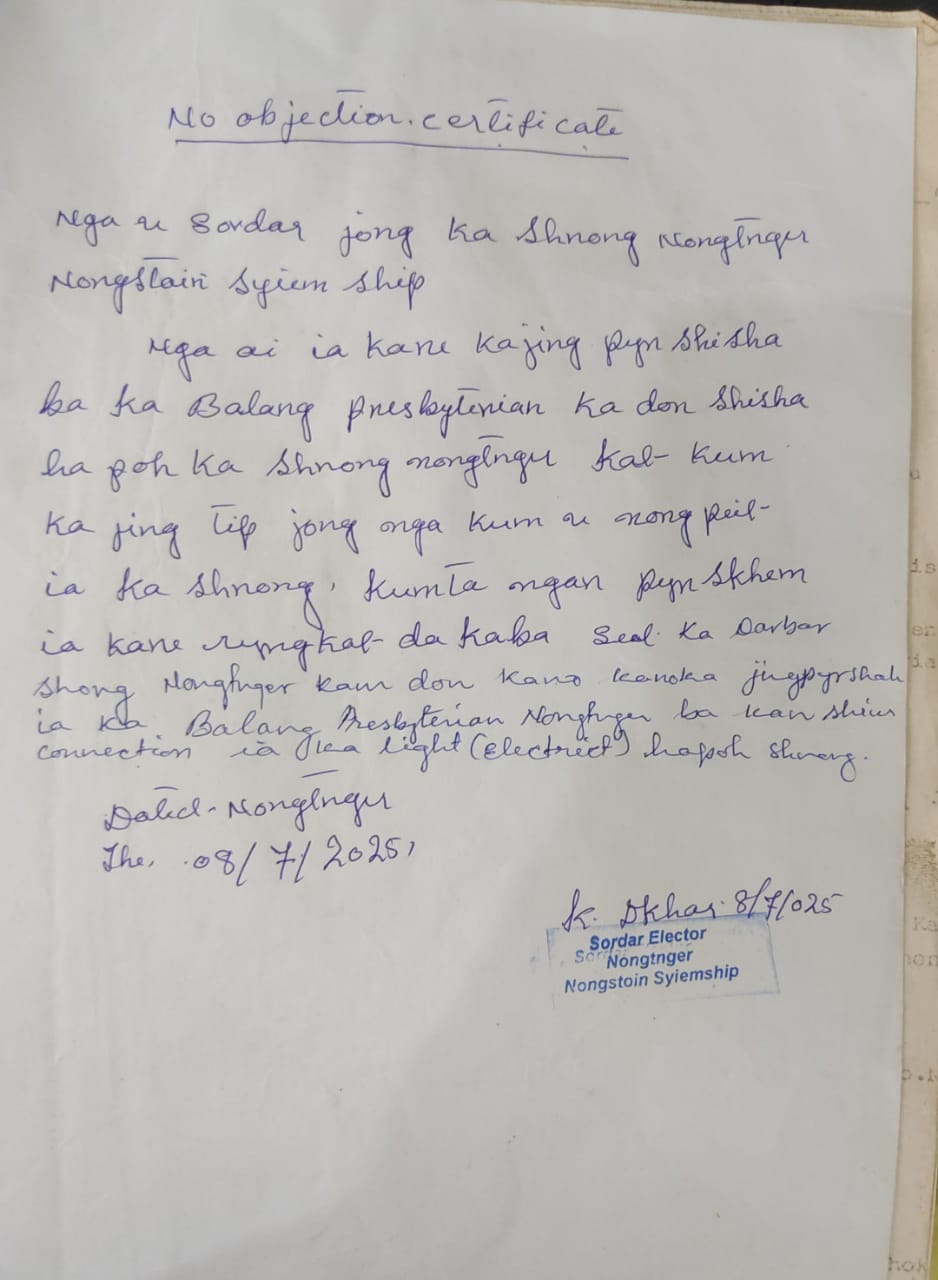 No objection. certificate
Nga u Sordar jong ka Shnong Nongtnger
Nongstoin Syiem ship
Nga ai ia kane kajing pyn shisha
ba ka Balang presbyterian ka don shisha
ha poh ka Shnong nongtnger kat kum
ka jing tip jong nga kum u nong peit
ia ka Shnong, kumta ngan pyn skhem
ia kane rungkat da kaba seal ka Darbar
shong Nongtnger kam don kano kanoka jingpyrshah
ia ka Balang Presbyterian Nongtnger ba kan shim
connection ia ka light (electrict) hapoh shnong.
Dated - Nongtnger
The, .08/7/2025,
K. Dkhar 8/7/025
Sordar Elector
Nongtnger
Nongstoin Syiemship